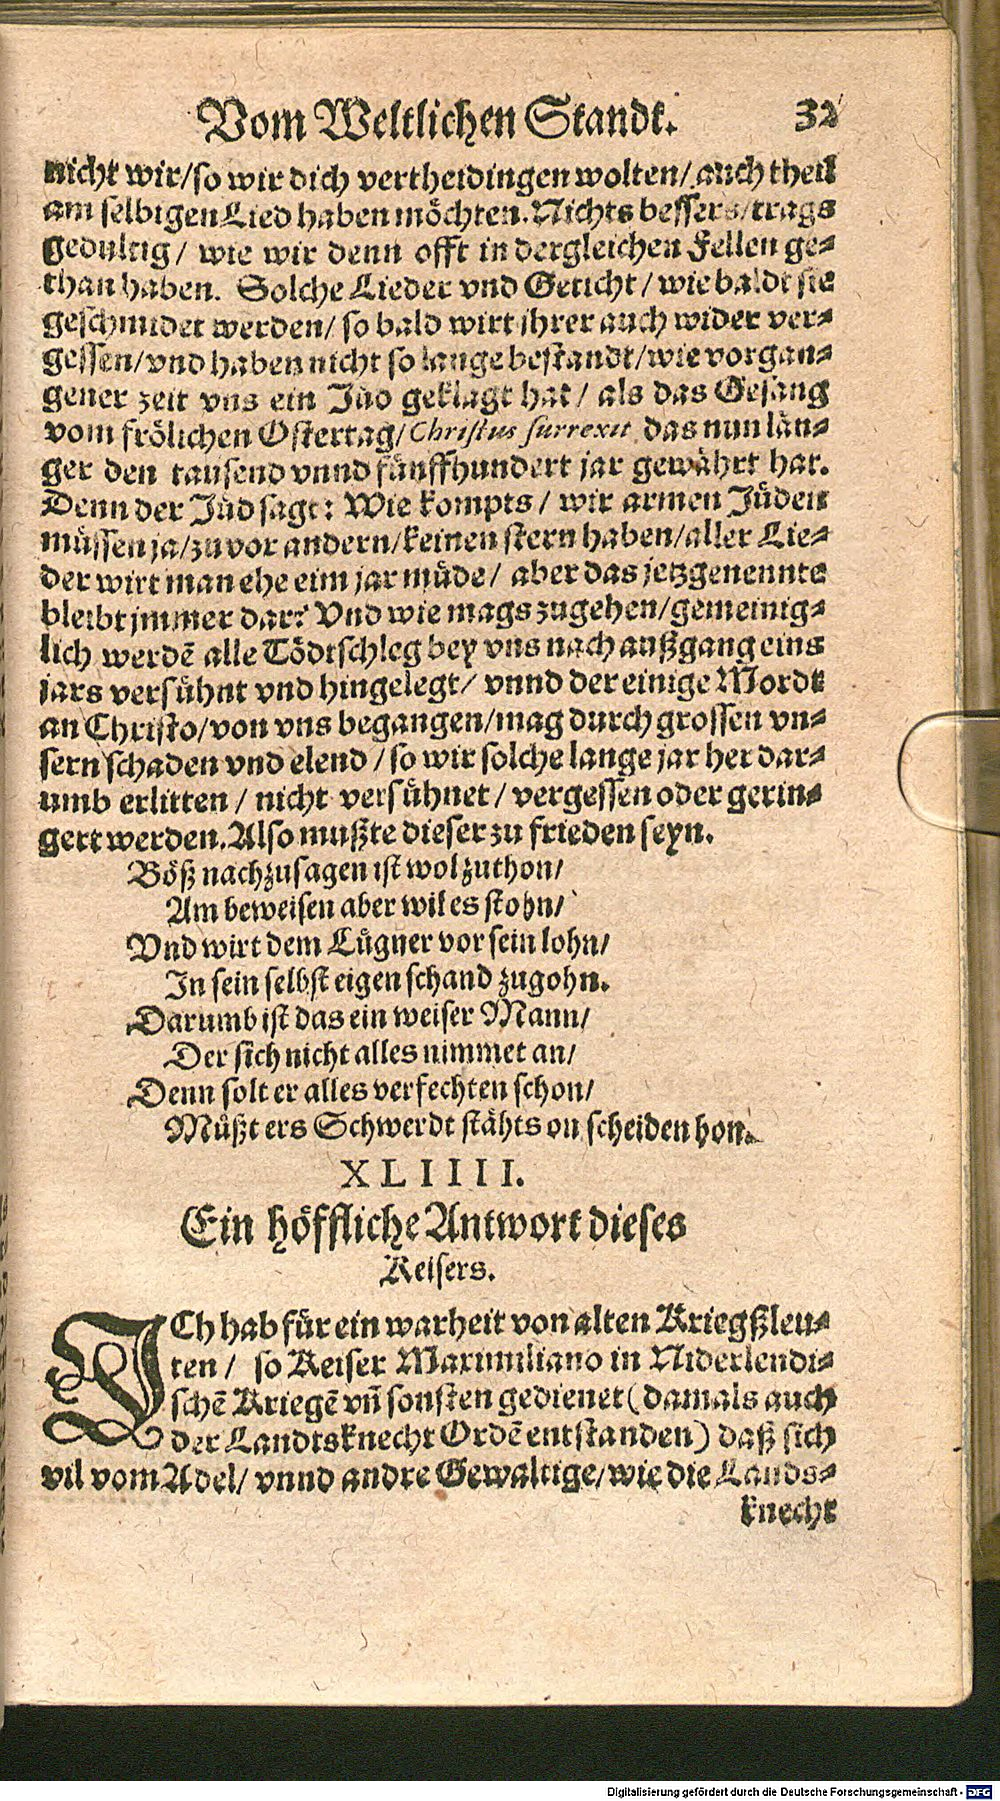 Vom Weltlichen Standt. 32
nicht wir/ so wir dich vertheidingen wolten/ auch theil
am selbigen Lied haben möchten. Nichts bessers/ trags
gedultig/ wie wir denn offt in dergleichen Fellen ge-
than haben. Solche Lieder vnd Geticht/ wie baldt sie
geschmidet werden/ so bald wirt ihrer auch wider ver-
gessen/ vnd haben nicht so lange bestandt/ wie vorgan-
gener zeit vns ein Jüd geklagt hat/ als das Gesang
vom frölichen Ostertag/ Christus surrexit das nun län-
ger den tausend vnnd fünffhundert jar gewährt hat.
Denn der Jüd sagt: Wie kompts/ wir armen Jüden
müssen ja/ zuvor andern/ keinen stern haben/ aller Lie-
der wirt man ehe eim jar müde/ aber das jetzgenennte
bleibt jmmer dar? Vnd wie mags zugehen/ gemeinig-
lich werdē alle Tödtschleg bey vns nach außgang eins
jars versühnt vnd hingelegt/ vnnd der einige Mordt
an Christo/ von vns begangen/ mag durch grossen vn-
sern schaden vnd elend/ so wir solche lange jar her dar-
umb erlitten/ nicht versühnet/ vergessen oder gerin-
gert werden. Also mußte dieser zu frieden seyn.
Böß nachzusagen ist wol zuthon/
Am beweisen aber wil es stohn/
Vnd wirt dem Lügner vor sein lohn/
In sein selbst eigen schand zugohn.
Darumb ist das ein weiser Mann/
Der sich nicht alles nimmet an/
Denn solt er alles verfechten schon/
Müßt ers Schwerdt stähts on scheiden hon.
XLIIII.
Ein höffliche Antwort dieses
Keisers.
ICh hab für ein warheit von alten Kriegßleu-
ten/ so Keiser Maximiliano in Niderlendi-
schē Kriegē vn̄ sonsten gedienet (damals auch
der Landtsknecht Ordē entstanden) daß sich
vil vom Adel/ vnnd andre Gewaltige/ wie die Lands-
knecht
Digitalisierung gefördert durch die Deutsche Forschungsgemeinschaft - DFG